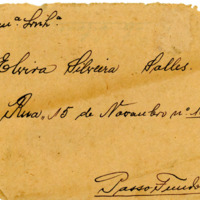 mª Snrª
Elvira Silveira Salles.
Rua, 15 de Novembro nº 1
Passo Fundo